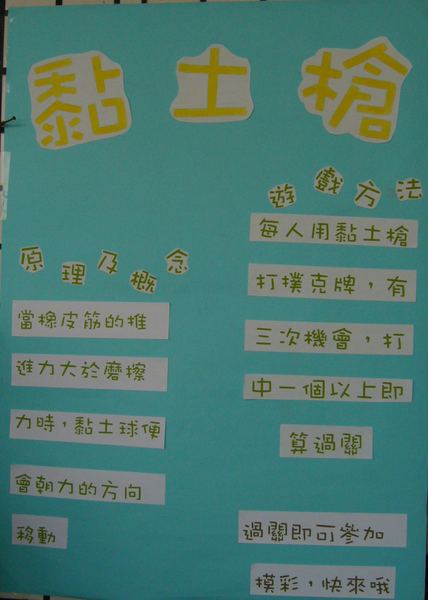 黏土槍
原理及概念
當橡皮筋的推
進力大於磨擦
力時，黏土球便
會朝力的方向
移動
遊戲方法
每人用黏土槍
打撲克牌，有
三次機會，打
中一個以上即
算過關
過關即可參加
摸彩，快來哦